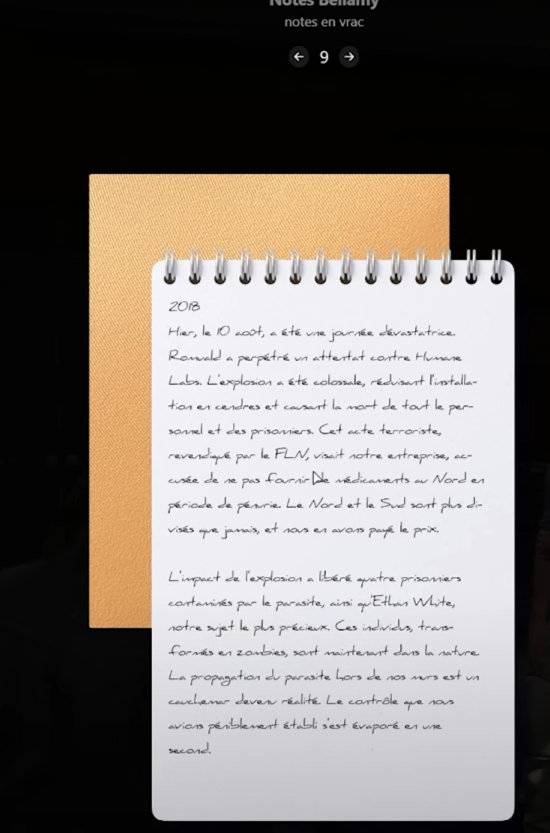 Notes Bellamy
notes en vrac
9
2018
Hier, le 10 août, a été une journée dévastatrice.
Romuald a perpétré un attentat contre Humane
Labs. L'explosion a été colossale, réduisant l'installa-
tion en cendres et causant la mort de tout le per-
sonnel et des prisonniers. Cet acte terroriste,
revendiqué par le FLN, visait notre entreprise, ac-
cusée de ne pas fournir de médicaments au Nord en
période de pénurie. Le Nord et le Sud sont plus di-
visés que jamais, et nous en avons payé le prix.
L'impact de l'explosion a libéré quatre prisonniers
contaminés par le parasite, ainsi qu'Ethan White,
notre sujet le plus précieux. Ces individus, trans-
formés en zombies, sont maintenant dans la nature.
La propagation du parasite hors de nos murs est un
cauchemar devenu réalité. Le contrôle que nous
avions péniblement établi s'est évaporé en une
second.